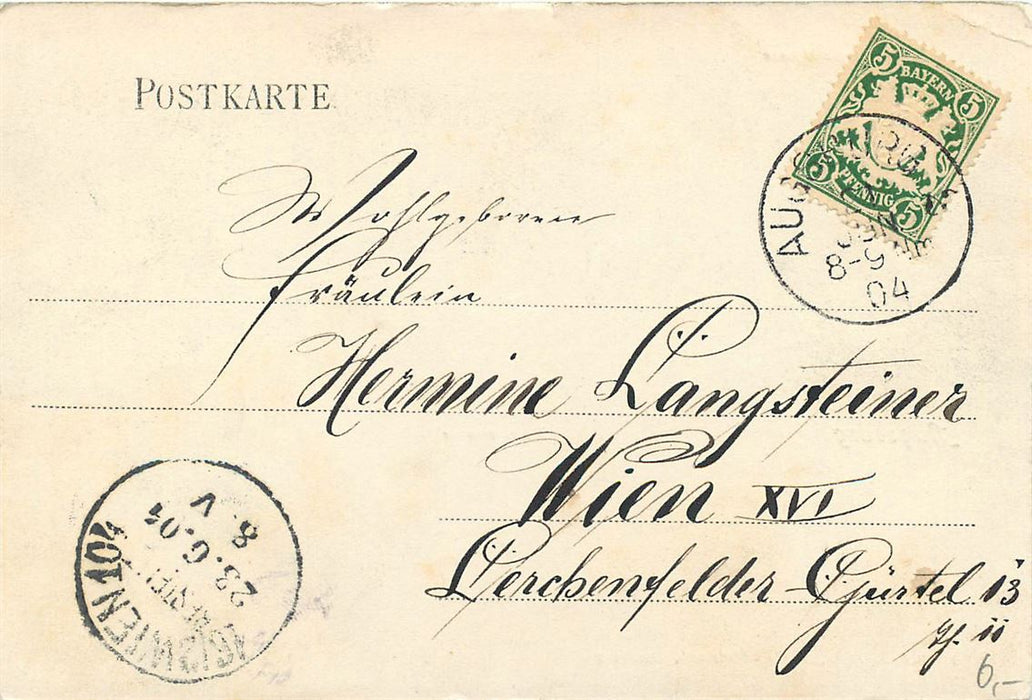 POSTKARTE
5 BAYERN 5
5 PFENNIG 5
AUGSBURG
8-9
04
Wohlgeboren
Fräulein
Hermine Längsteiner
Wien XVI
Lerchenfelder-Gürtel 13
II
16/2 WIEN 104
23.6.04
8.V
6,-